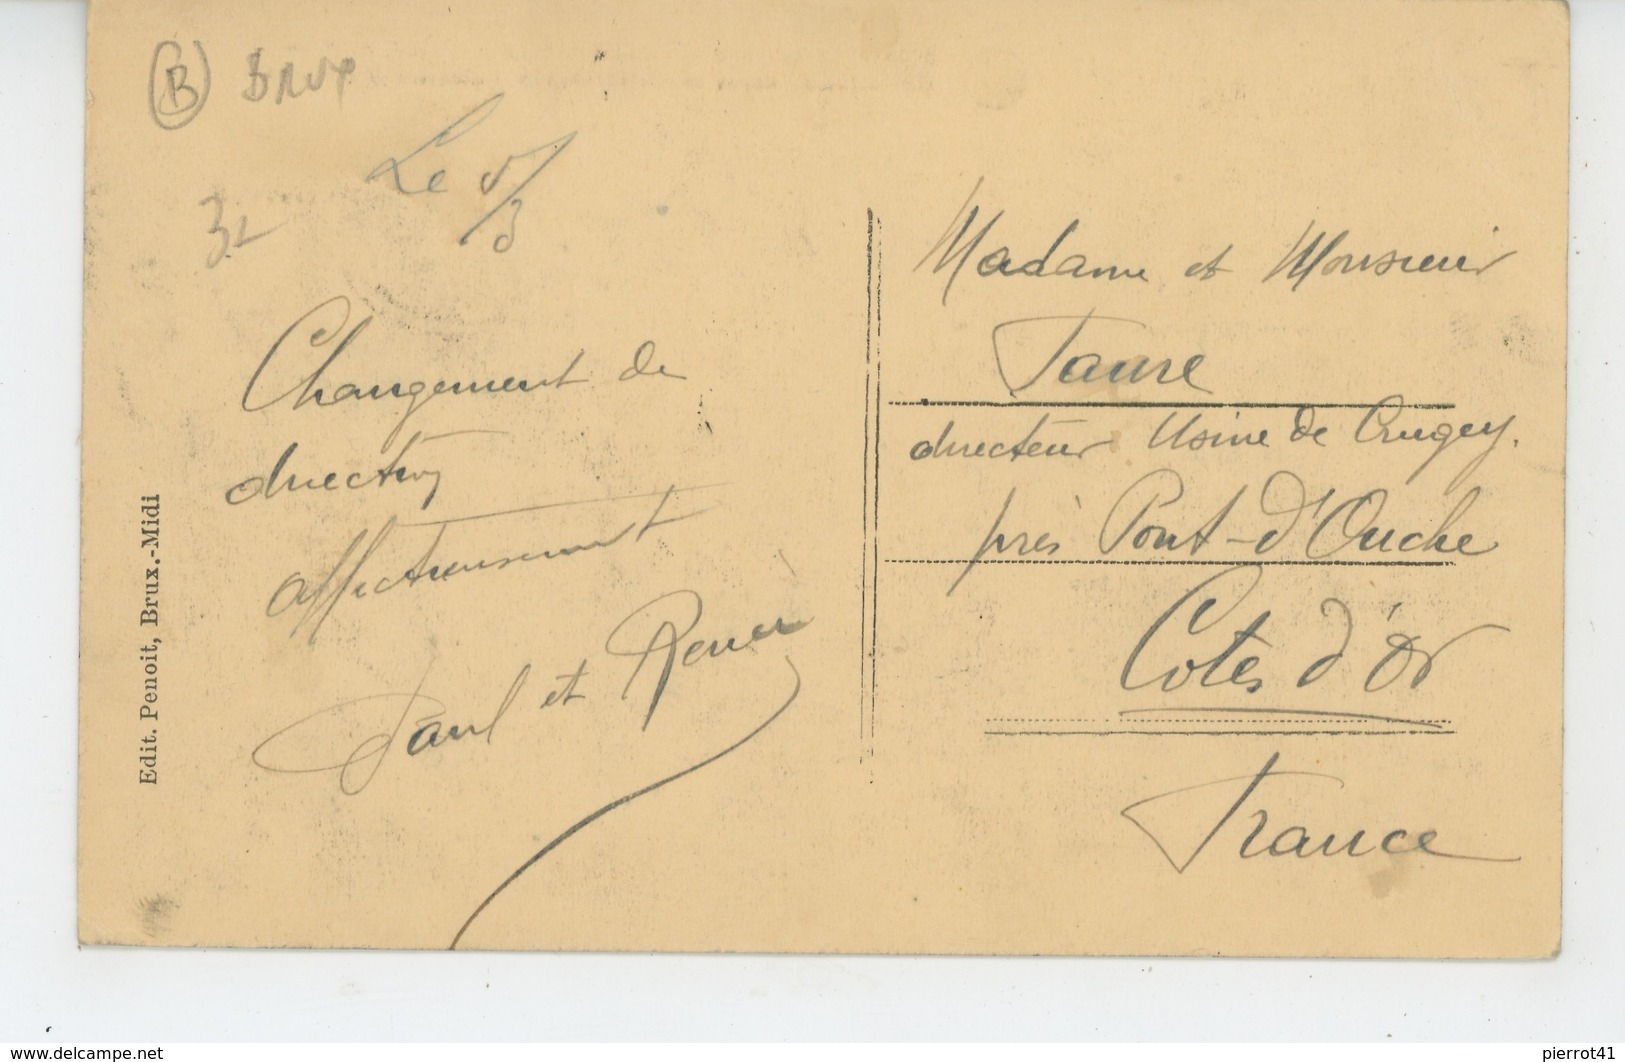 B Brux
Le 5/3
32
Changement de
direction
affectueusement
Paul et Renée
Edit. Penoit, Brux.-Midi
Madame et Monsieur
Faure
directeur Usine de Crugey.
près Pont-d'Ouche
Côtes d'Or
France
www.delcampe.net
pierrot41